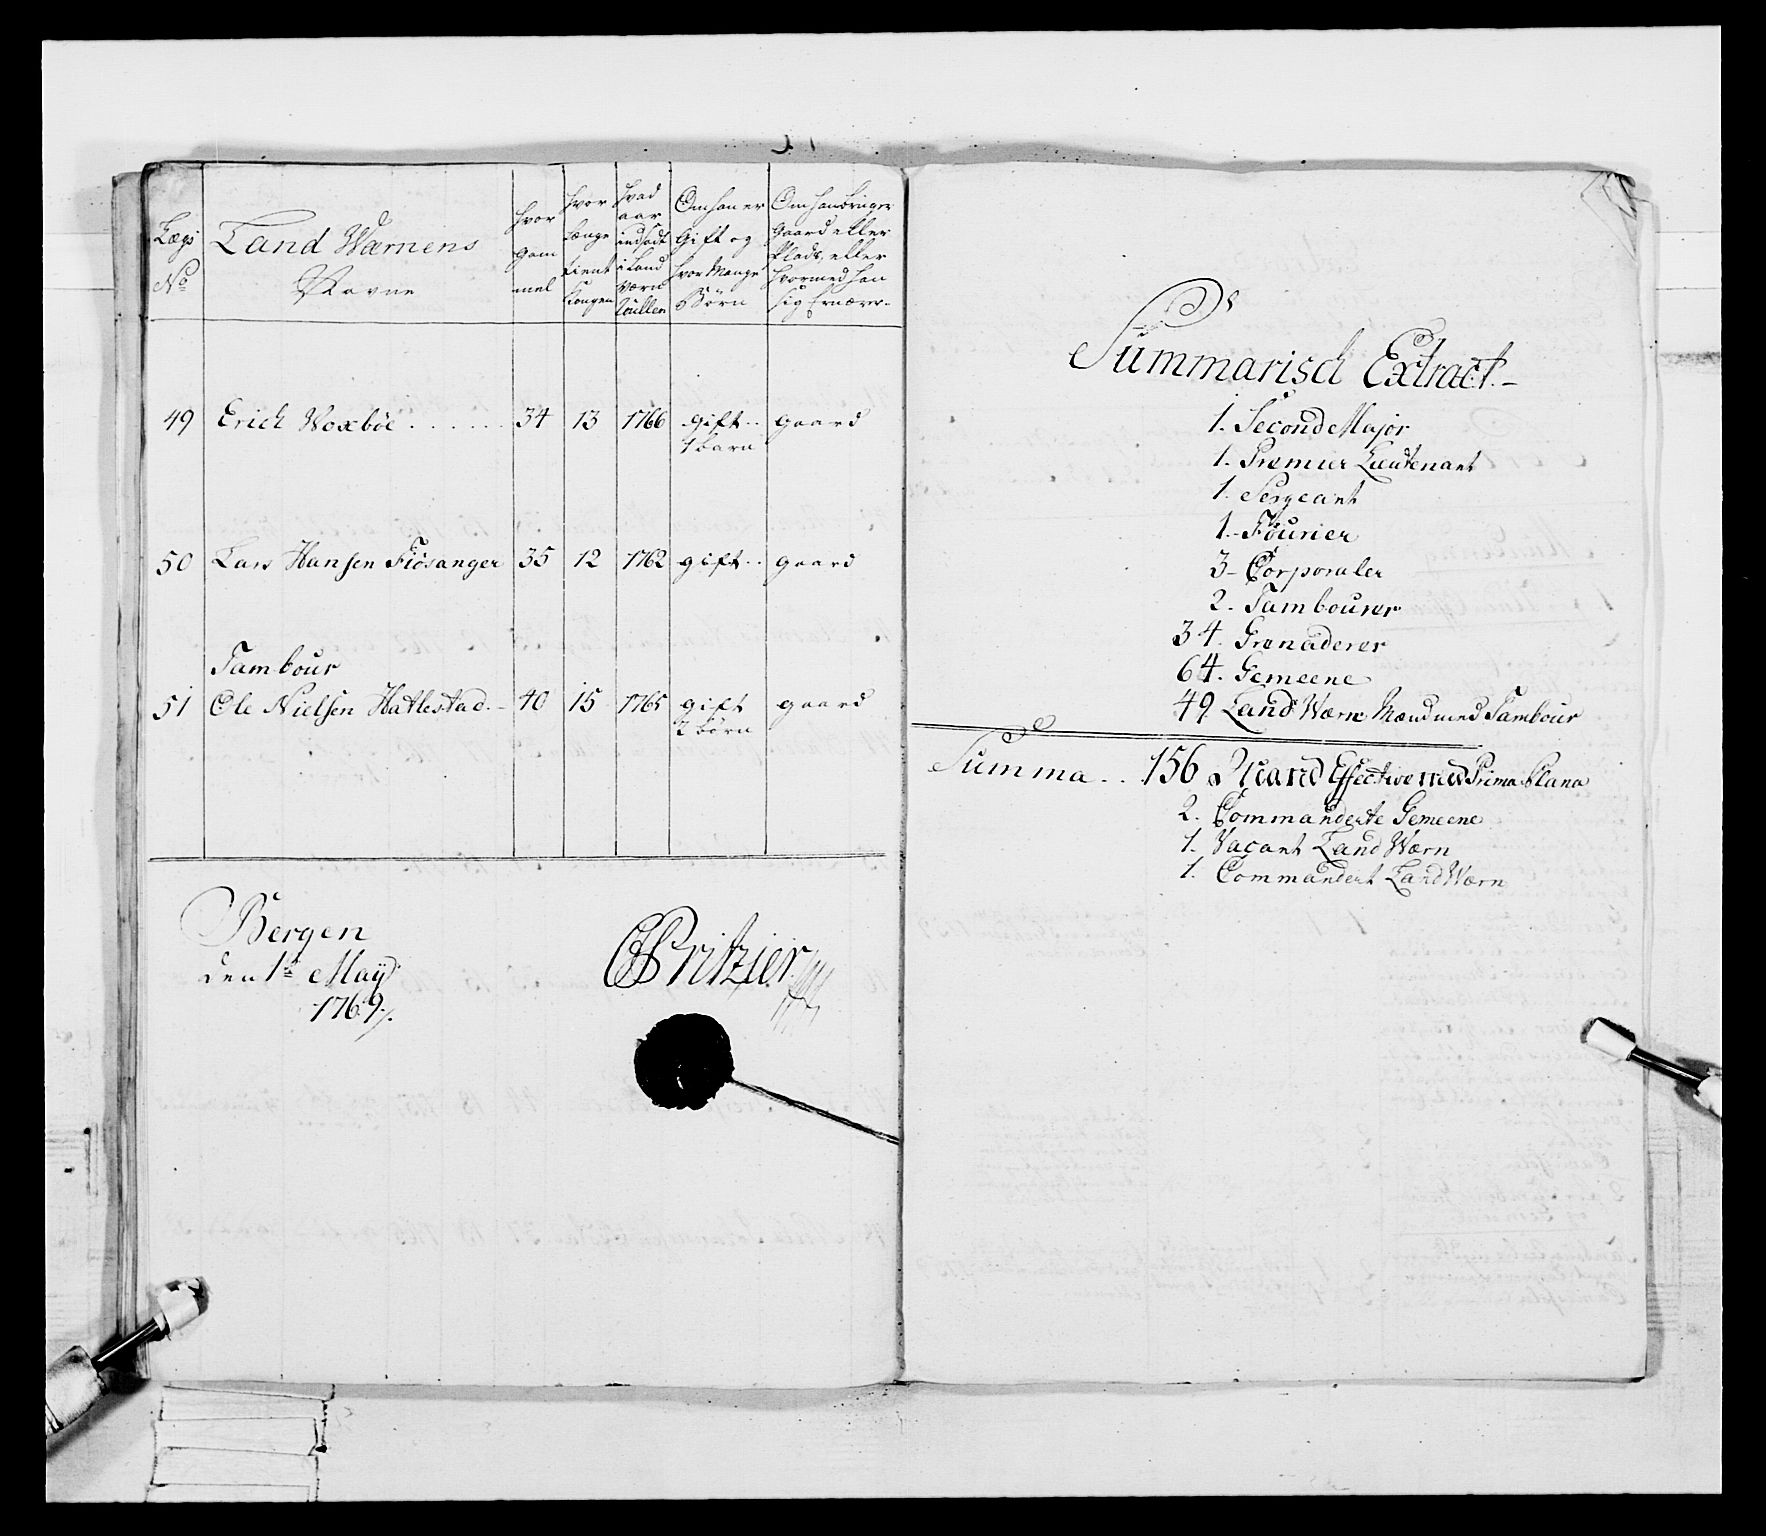 Lægs No
Land Wærnens Navne
hvor gam mel
hvor længe tient Kongen
hvad aar indsadt i Land værn Roullen
Om han er Gift og hvor Mange Börn
Om han bruger Gaard eller Plads, eller hvormed han sig Ernærer
49 Erich Woxböe . . . . . . 34 13 1766 gift . . gaard
1 barn
50 Lars Hansen Fiösanger 35 12 1762 gift . . gaard
Tambour
51 Ole Nielsen Hatlestad . - 40 15 1765 gift gaard
2 börn
Bergen
den 1te May
1769
Pritzier
Summarisch Extract. -
1. Second Major
1. Premier Lieutenant
1. Sergeant
1. Fourier
3 - Corporaler
2. Tambourer
34. Grenaderer
64. Gemeene
49 Land Wærn Mænd med Tambour
Summa . . 156 Mand Effective med Prima Plana
2. Commanderte Gemeene
1. Vacant Land Wærn
1. Commandert Land Wærn